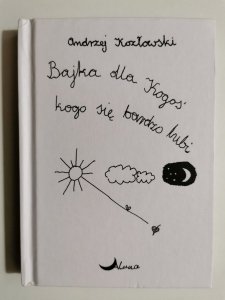 Andrzej Kozłowski
Bajka dla Kogoś
kogo się bardzo lubi
Aluna